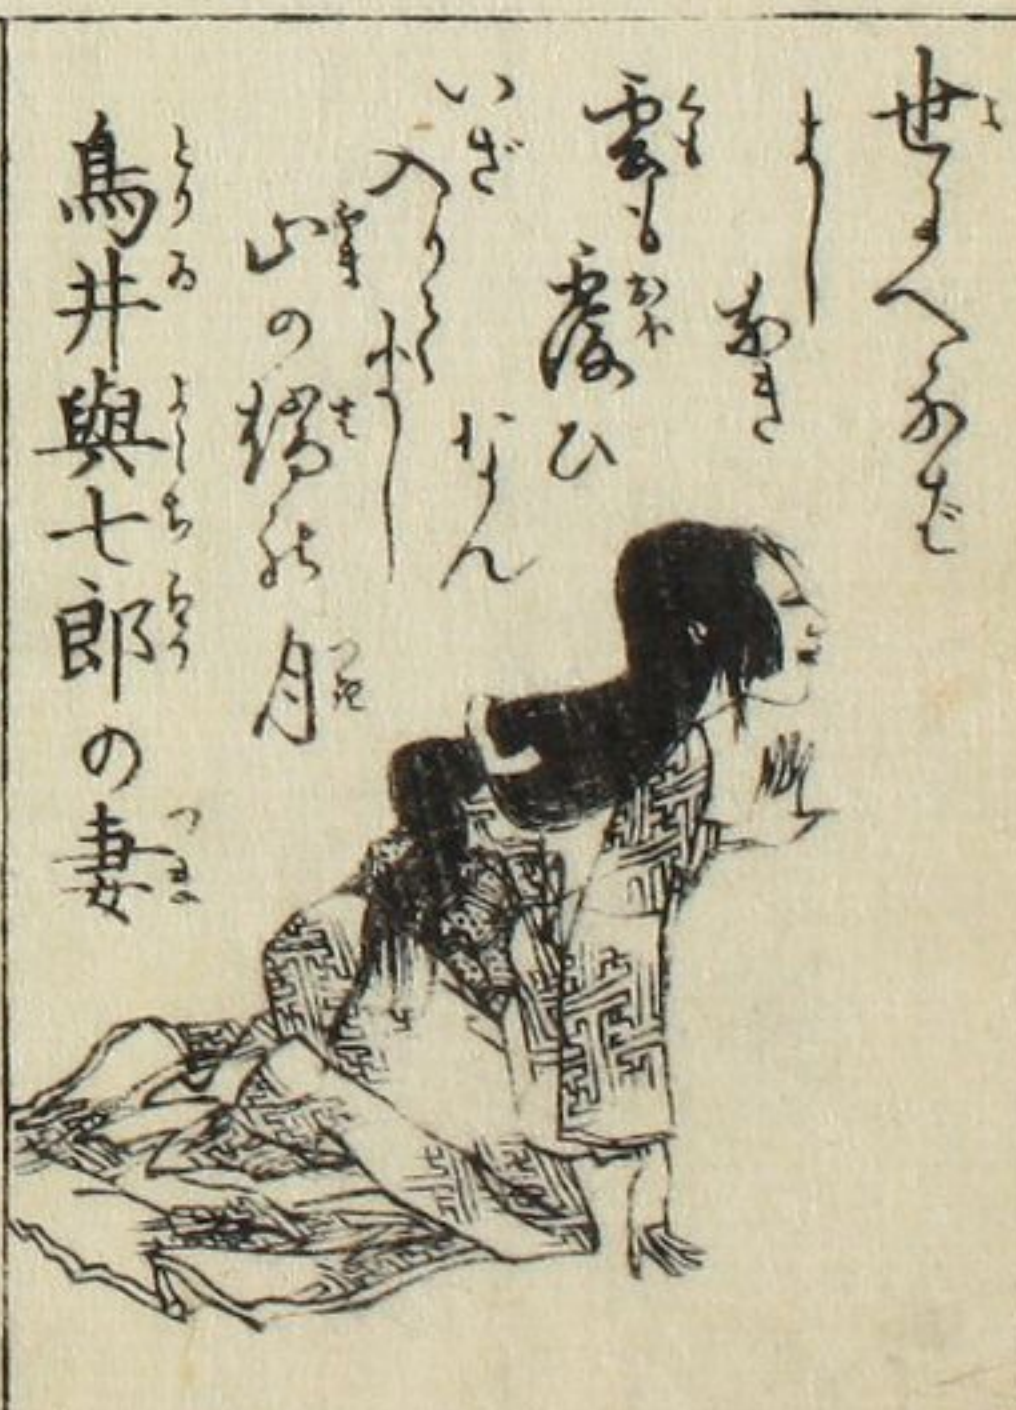 世にへなば
よしなき
雲も覆ひ
なん
いざ
入りてまし
山の端の月
鳥井與七郎の妻